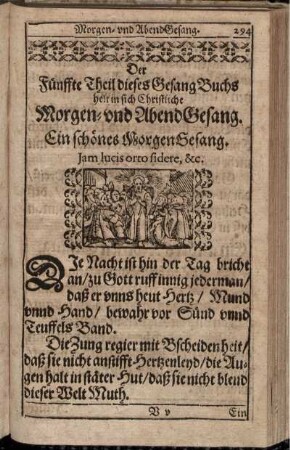 Morgen- vnd AbendGesang. 294
Der
Fünffte Theil dieses Gesang Buchs
helt in sich Christliche
Morgen- vnd AbendGesang.
Ein schönes MorgenGesang.
Jam lucis orto sidere, &c.
DJe Nacht ist hin der Tag bricht
an/ zu Gott ruff innig jederman/
daß er vnns heut Hertz/ Mund
vnnd Hand/ bewahr vor Sünd vnnd
Teuffels Band.
Die Zung regier mit Bscheidenheit/
daß sie nicht anstifft Hertzenleyd/ die Au-
gen halt in stäter Hut/ daß sie nicht blend
dieser Welt Muth.
V v Ein